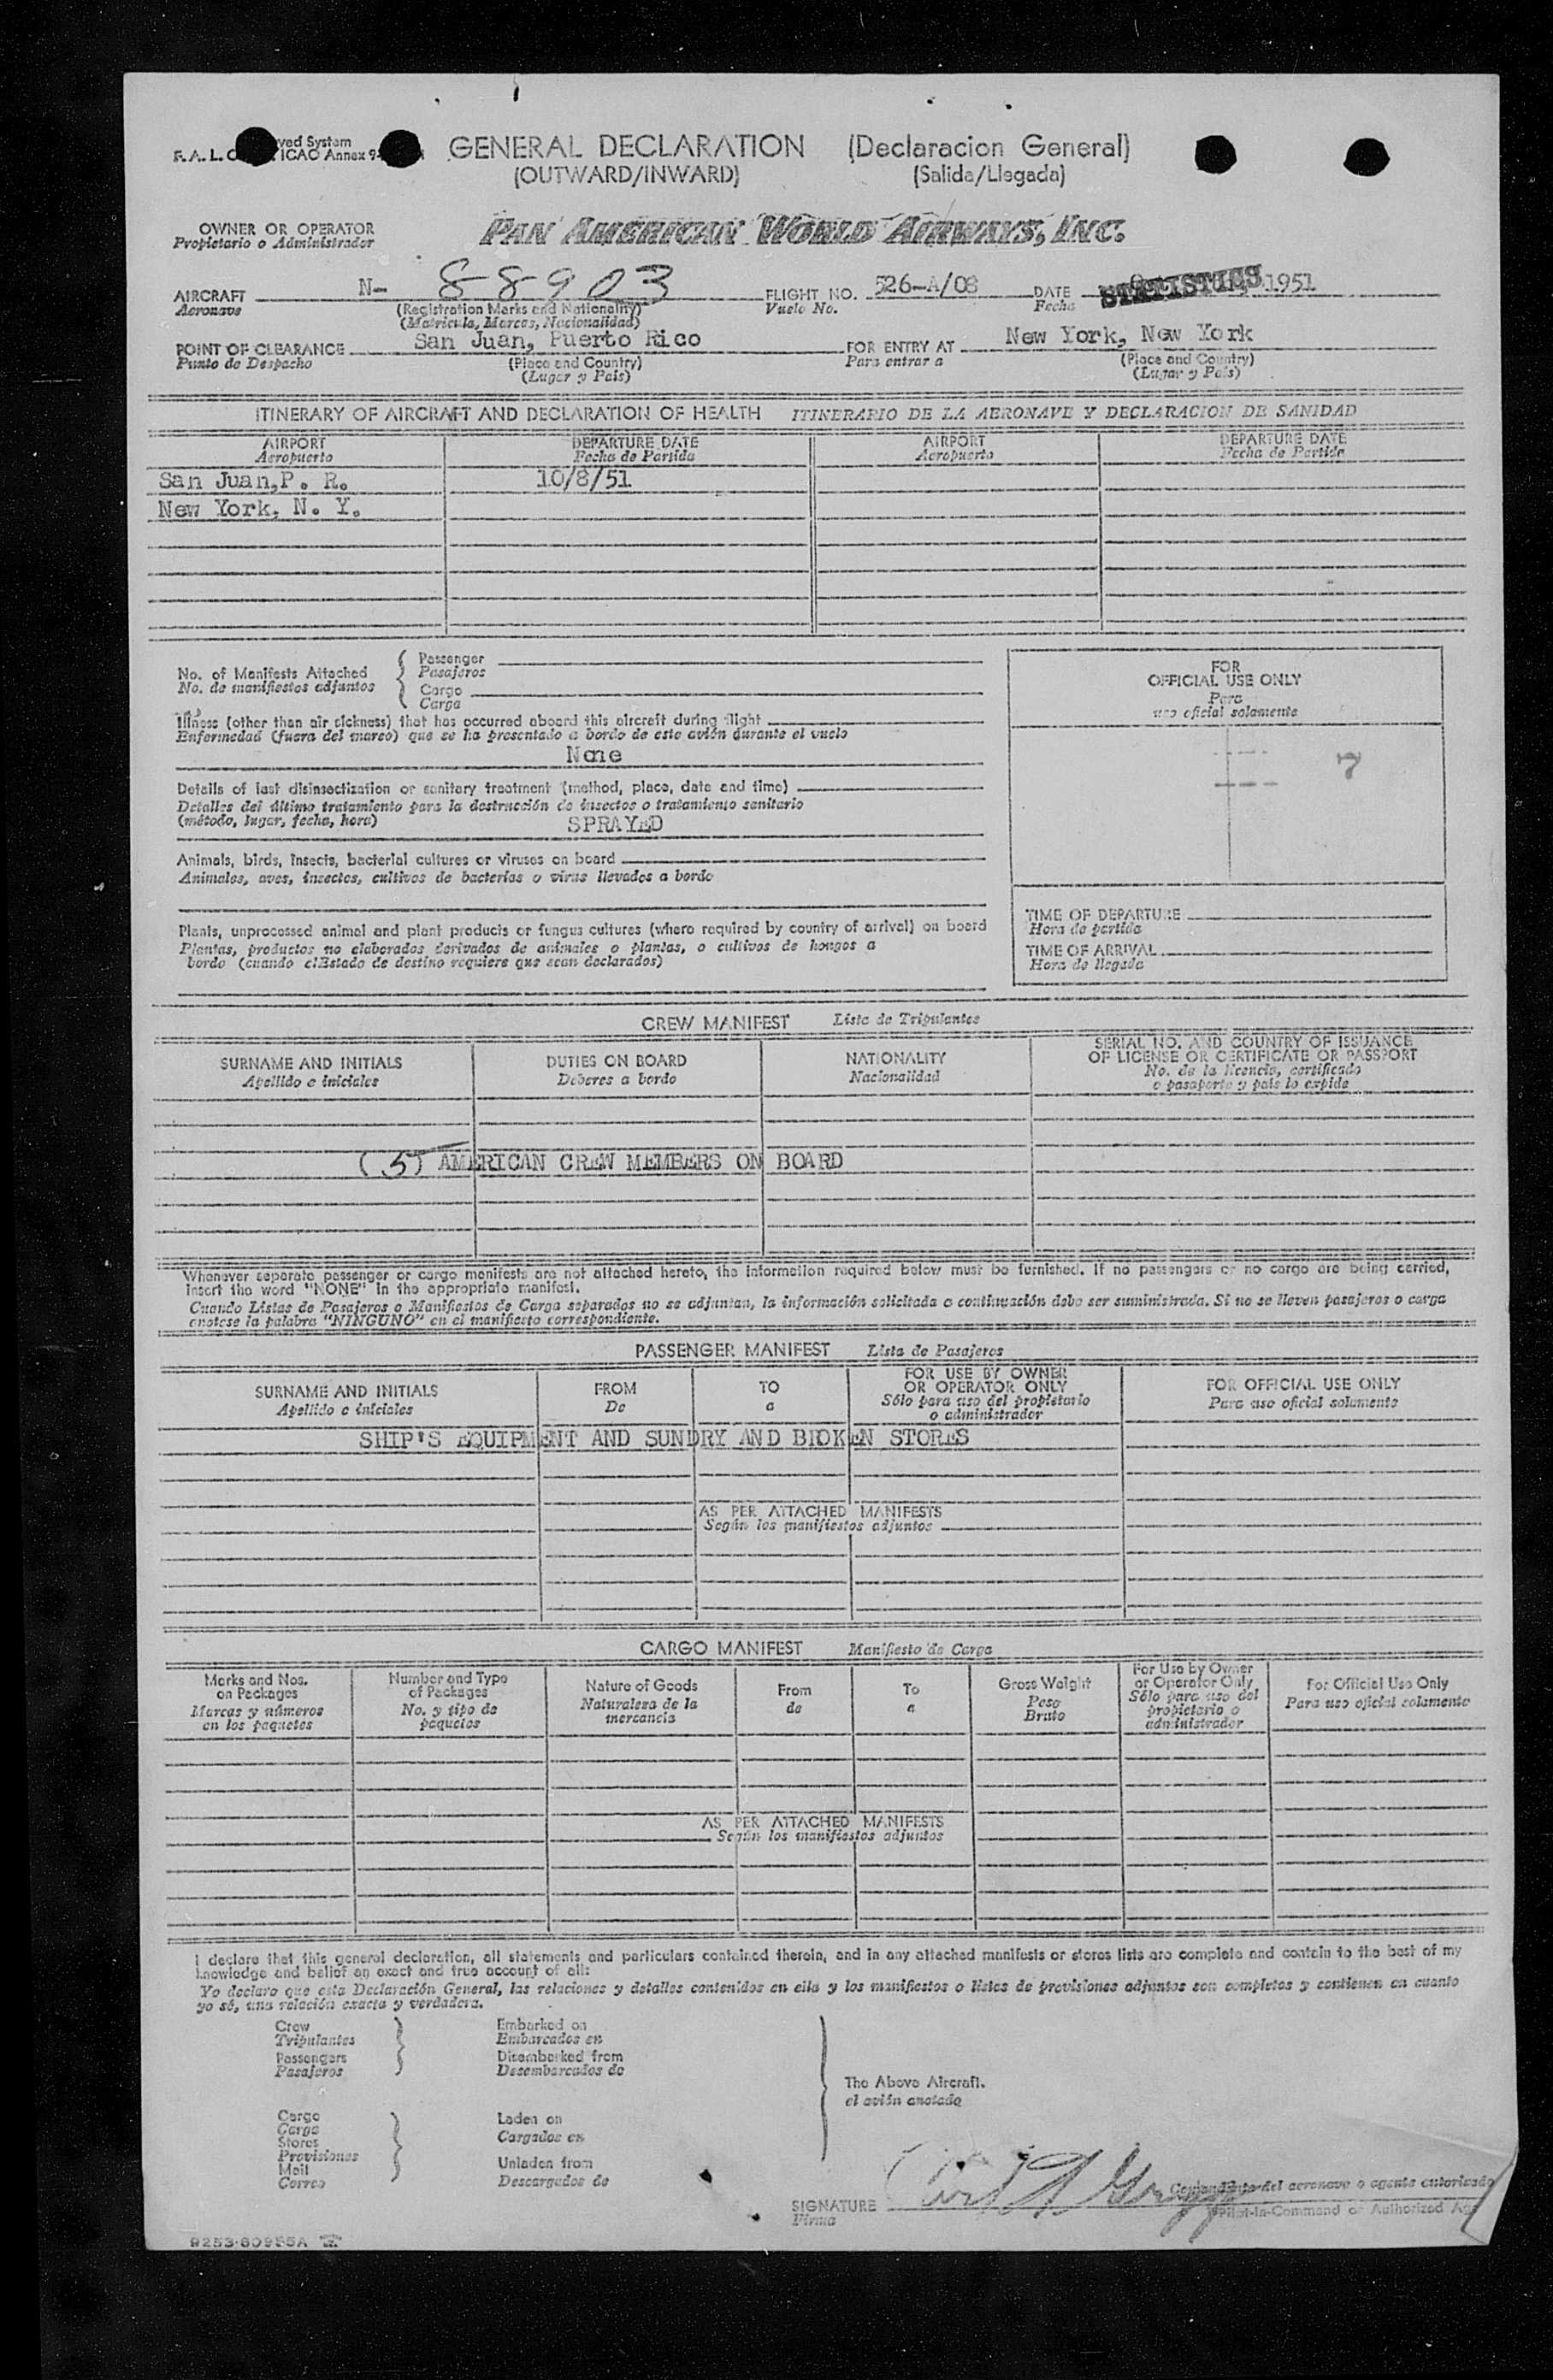 GENERAL DECLARATION (Declaracion General)
(OUTWARD/INWARD) (Salida/Llegada)
ved System
F. A. L. ICAO Annex 9
OWNER OR OPERATOR PAN AMERICAN WORLD AIRWAYS, INC.
Propietario o Administrador
AIRCRAFT N- 88903 FLIGHT NO. 526-A/08 DATE STATISTICS 1951
Aeronave (Registration Marks and Nationality) Vuelo No. Fecha
(Matricula, Marcas, Nacionalidad)
POINT OF CLEARANCE San Juan, Puerto Rico FOR ENTRY AT New York, New York
Punto de Despacho (Place and Country) Para entrar a (Place and Country)
(Lugar y País) (Lugar y País)
ITINERARY OF AIRCRAFT AND DECLARATION OF HEALTH ITINERARIO DE LA AERONAVE Y DECLARACION DE SANIDAD
AIRPORT DEPARTURE DATE AIRPORT DEPARTURE DATE
Aeropuerto Fecha de Partida Aeropuerto Fecha de Partida
San Juan,P. R. 10/8/51
New York, N. Y.
No. of Manifests Attached Passenger
No. de manifiestos adjuntos Pasajeros
Cargo
Carga
Illness (other than air sickness) that has occurred aboard this aircraft during flight
Enfermedad (fuera del mareo) que se ha presentado a bordo de este avión durante el vuelo
None
Details of last disinsectization or sanitary treatment (method, place, date and time)
Detalles del último tratamiento para la destrucción de insectos o tratamiento sanitario
(método, lugar, fecha, hora) SPRAYED
Animals, birds, insects, bacterial cultures or viruses on board
Animales, aves, insectos, cultivos de bacterias o virus llevados a bordo
Plants, unprocessed animal and plant products or fungus cultures (where required by country of arrival) on board
Plantas, productos no elaborados derivados de animales o plantas, o cultivos de hongos a
bordo (cuando el Estado de destino requiere que sean declarados)
FOR
OFFICIAL USE ONLY
Para
uso oficial solamente
7
TIME OF DEPARTURE
Hora de partida
TIME OF ARRIVAL
Hora de llegada
CREW MANIFEST Lista de Tripulantes
SURNAME AND INITIALS DUTIES ON BOARD NATIONALITY SERIAL NO. AND COUNTRY OF ISSUANCE
OF LICENSE OR CERTIFICATE OR PASSPORT
Apellido e iniciales Deberes a bordo Nacionalidad No. de la licencia, certificado
o pasaporte y país lo expide
(5) AMERICAN CREW MEMBERS ON BOARD
Whenever separate passenger or cargo manifests are not attached hereto, the information required below must be furnished. If no passengers or no cargo are being carried,
insert the word "NONE" in the appropriate manifest.
Cuando Listas de Pasajeros o Manifiestos de Carga separados no se adjuntan, la información solicitada a continuación debe ser suministrada. Si no se lleven pasajeros o carga
anotese la palabra "NINGUNO" en el manifiesto correspondiente.
PASSENGER MANIFEST Lista de Pasajeros
SURNAME AND INITIALS FROM TO FOR USE BY OWNER
OR OPERATOR ONLY FOR OFFICIAL USE ONLY
Apellido e iniciales De a Sólo para uso del propietario
o administrador Para uso oficial solamente
SHIP'S EQUIPMENT AND SUNDRY AND BROKEN STORES
AS PER ATTACHED MANIFESTS
Según los manifiestos adjuntos
CARGO MANIFEST Manifiesto de Carga
Marks and Nos.
on Packages
Marcas y números
en los paquetes
Number and Type
of Packages
No. y tipo de
paquetes
Nature of Goods
Naturaleza de la
mercancia
From
de
To
a
Gross Weight
Peso
Bruto
For Use by Owner
or Operator Only
Sólo para uso del
propietario o
administrador
For Official Use Only
Para uso oficial solamente
AS PER ATTACHED MANIFESTS
Según los manifiestos adjuntos
I declare that this general declaration, all statements and particulars contained therein, and in any attached manifests or stores lists are complete and contain to the best of my
knowledge and belief an exact and true account of all:
Yo declaro que esta Declaración General, las relaciones y detalles contenidos en ella y los manifiestos o listas de provisiones adjuntos son completos y contienen en cuanto
yo sé, una relación exacta y verdadera.
Crew
Tripulantes
Passengers
Pasajeros
Embarked on
Embarcados en
Disembarked from
Desembarcados de
The Above Aircraft.
el avión anotado
Cargo
Carga
Stores
Provisiones
Mail
Correo
Laden on
Cargados en
Unladen from
Descargados de
SIGNATURE
Firma
Comandante del aeronave o agente autorizado
Pilot-in-Command or Authorized Ag
9253-60955A